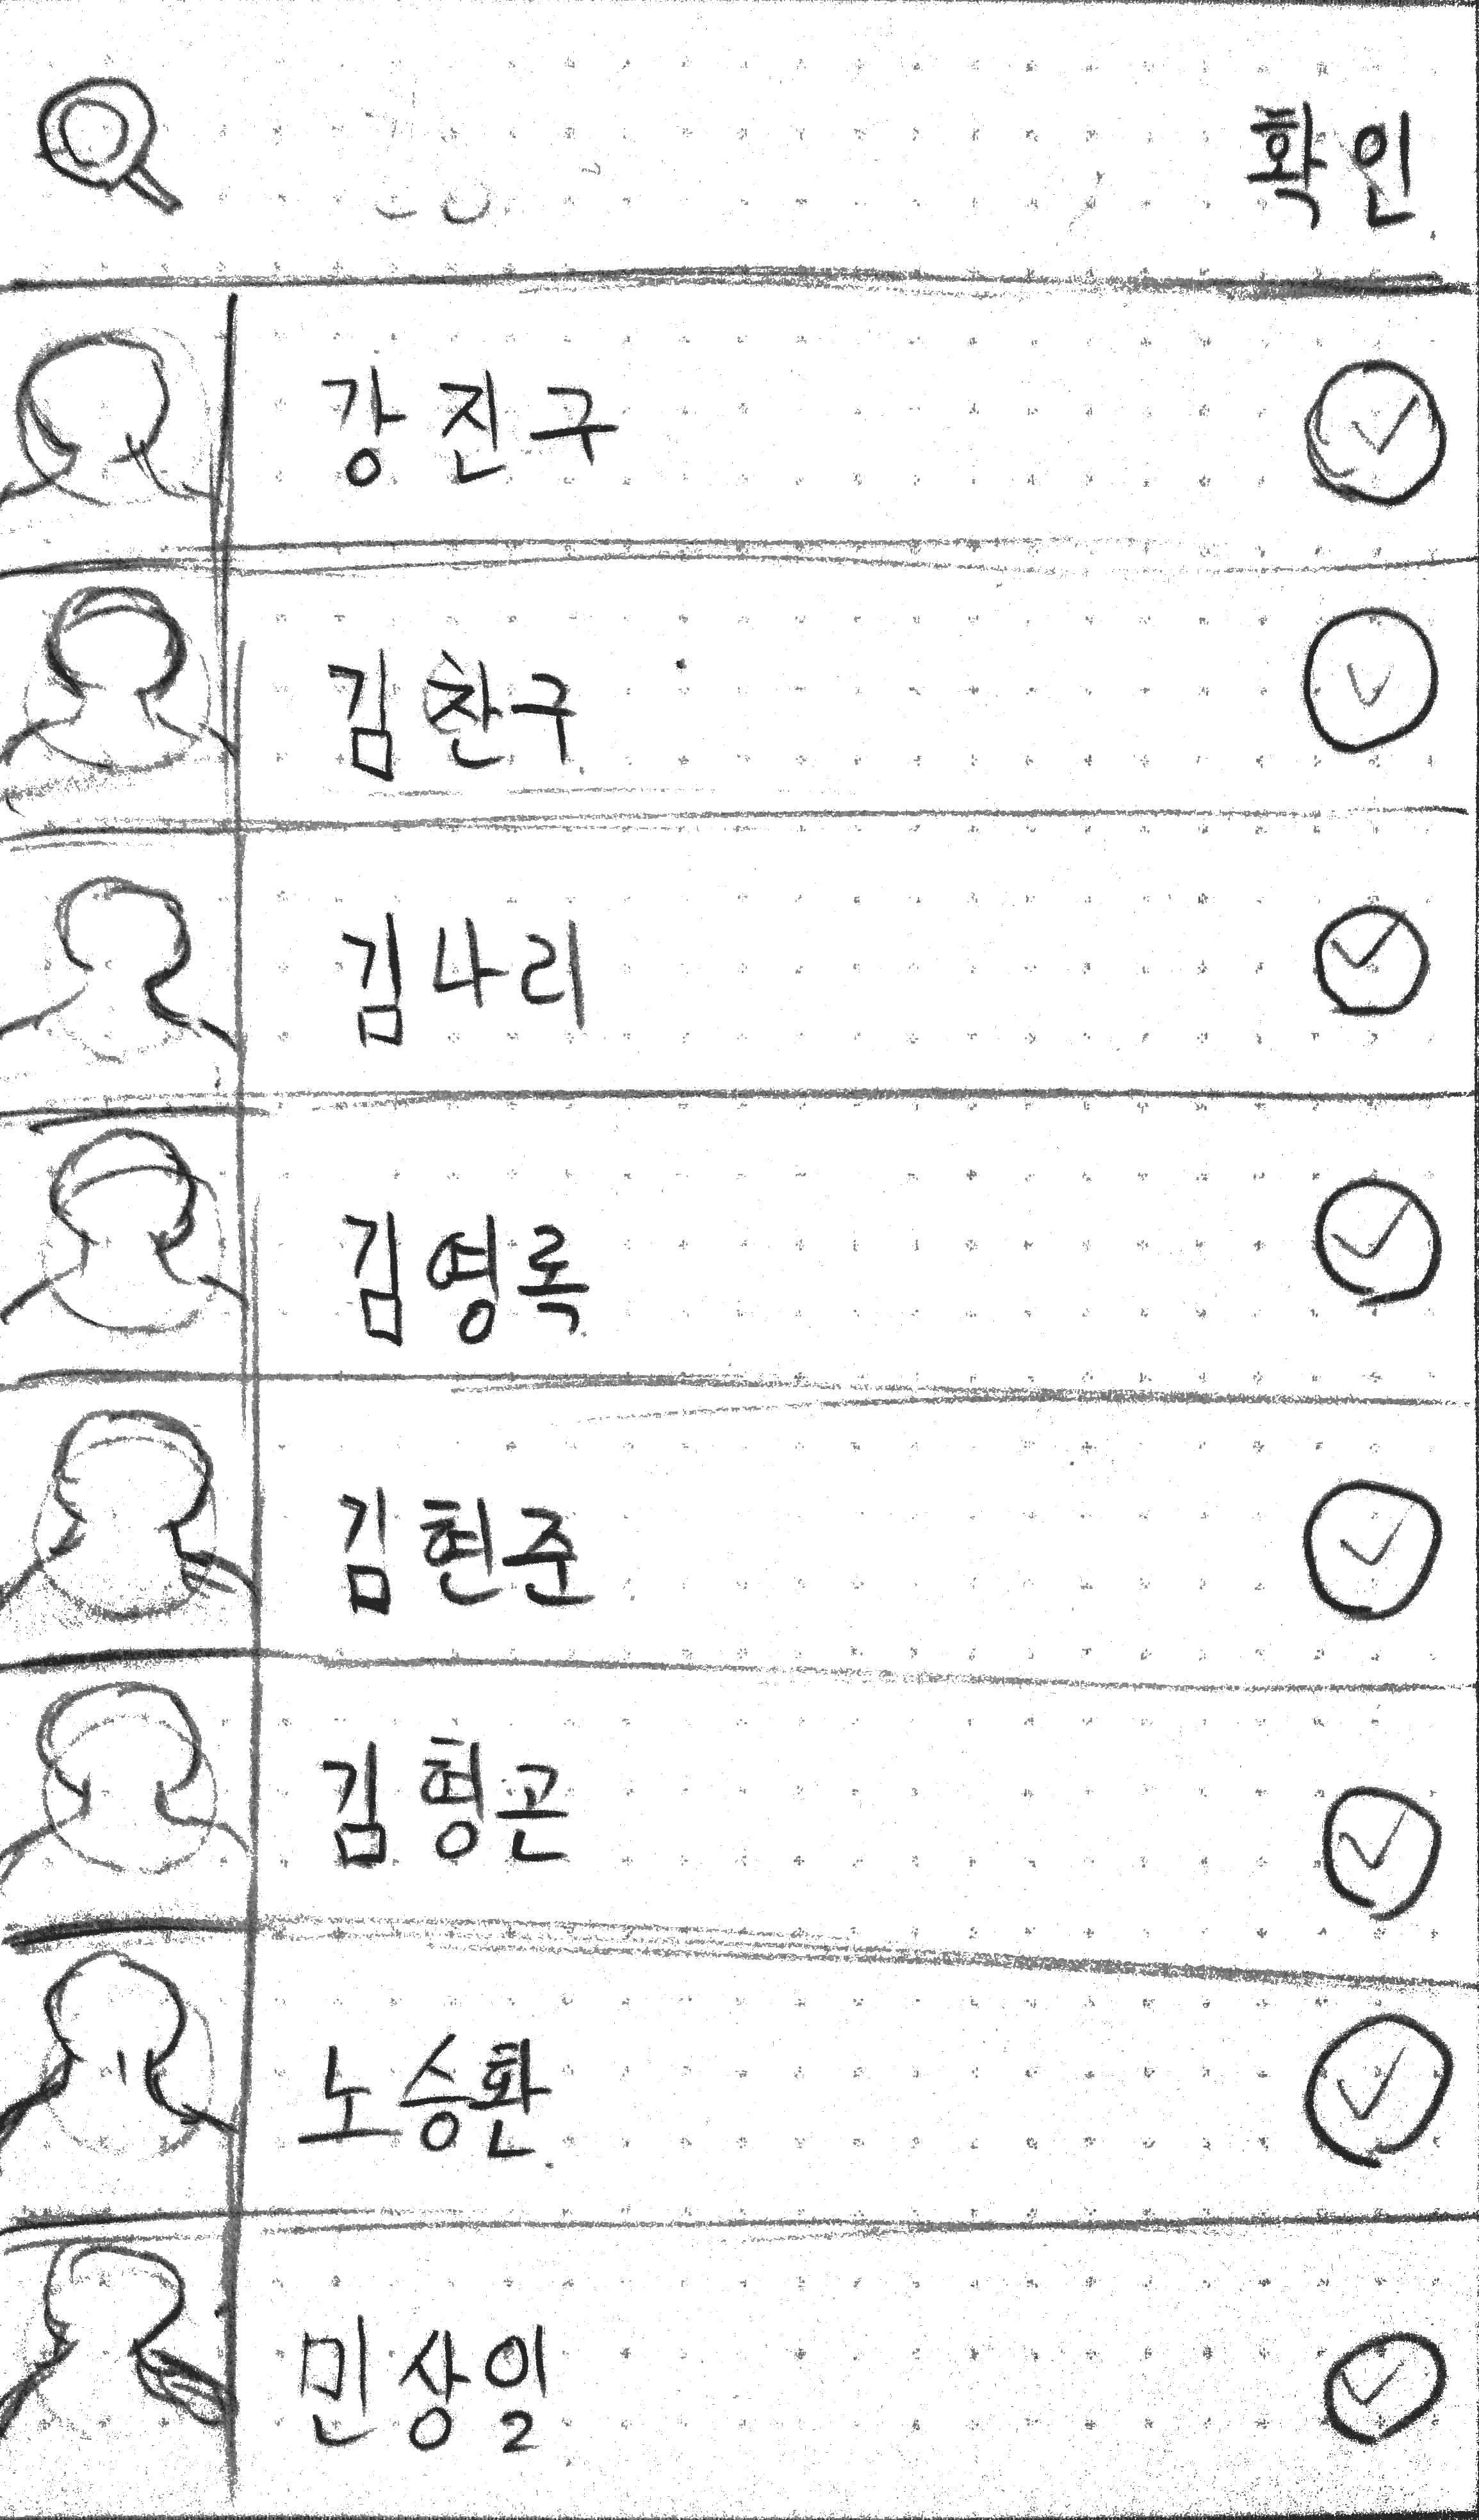 확인
강진구
김찬구
김나리
김영록
김현준
김형곤
노승환
민상일